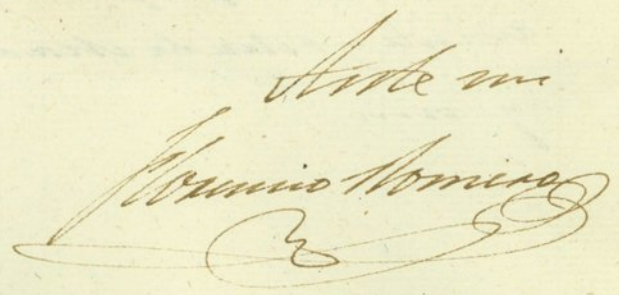 Ante mi
Florencio Romero